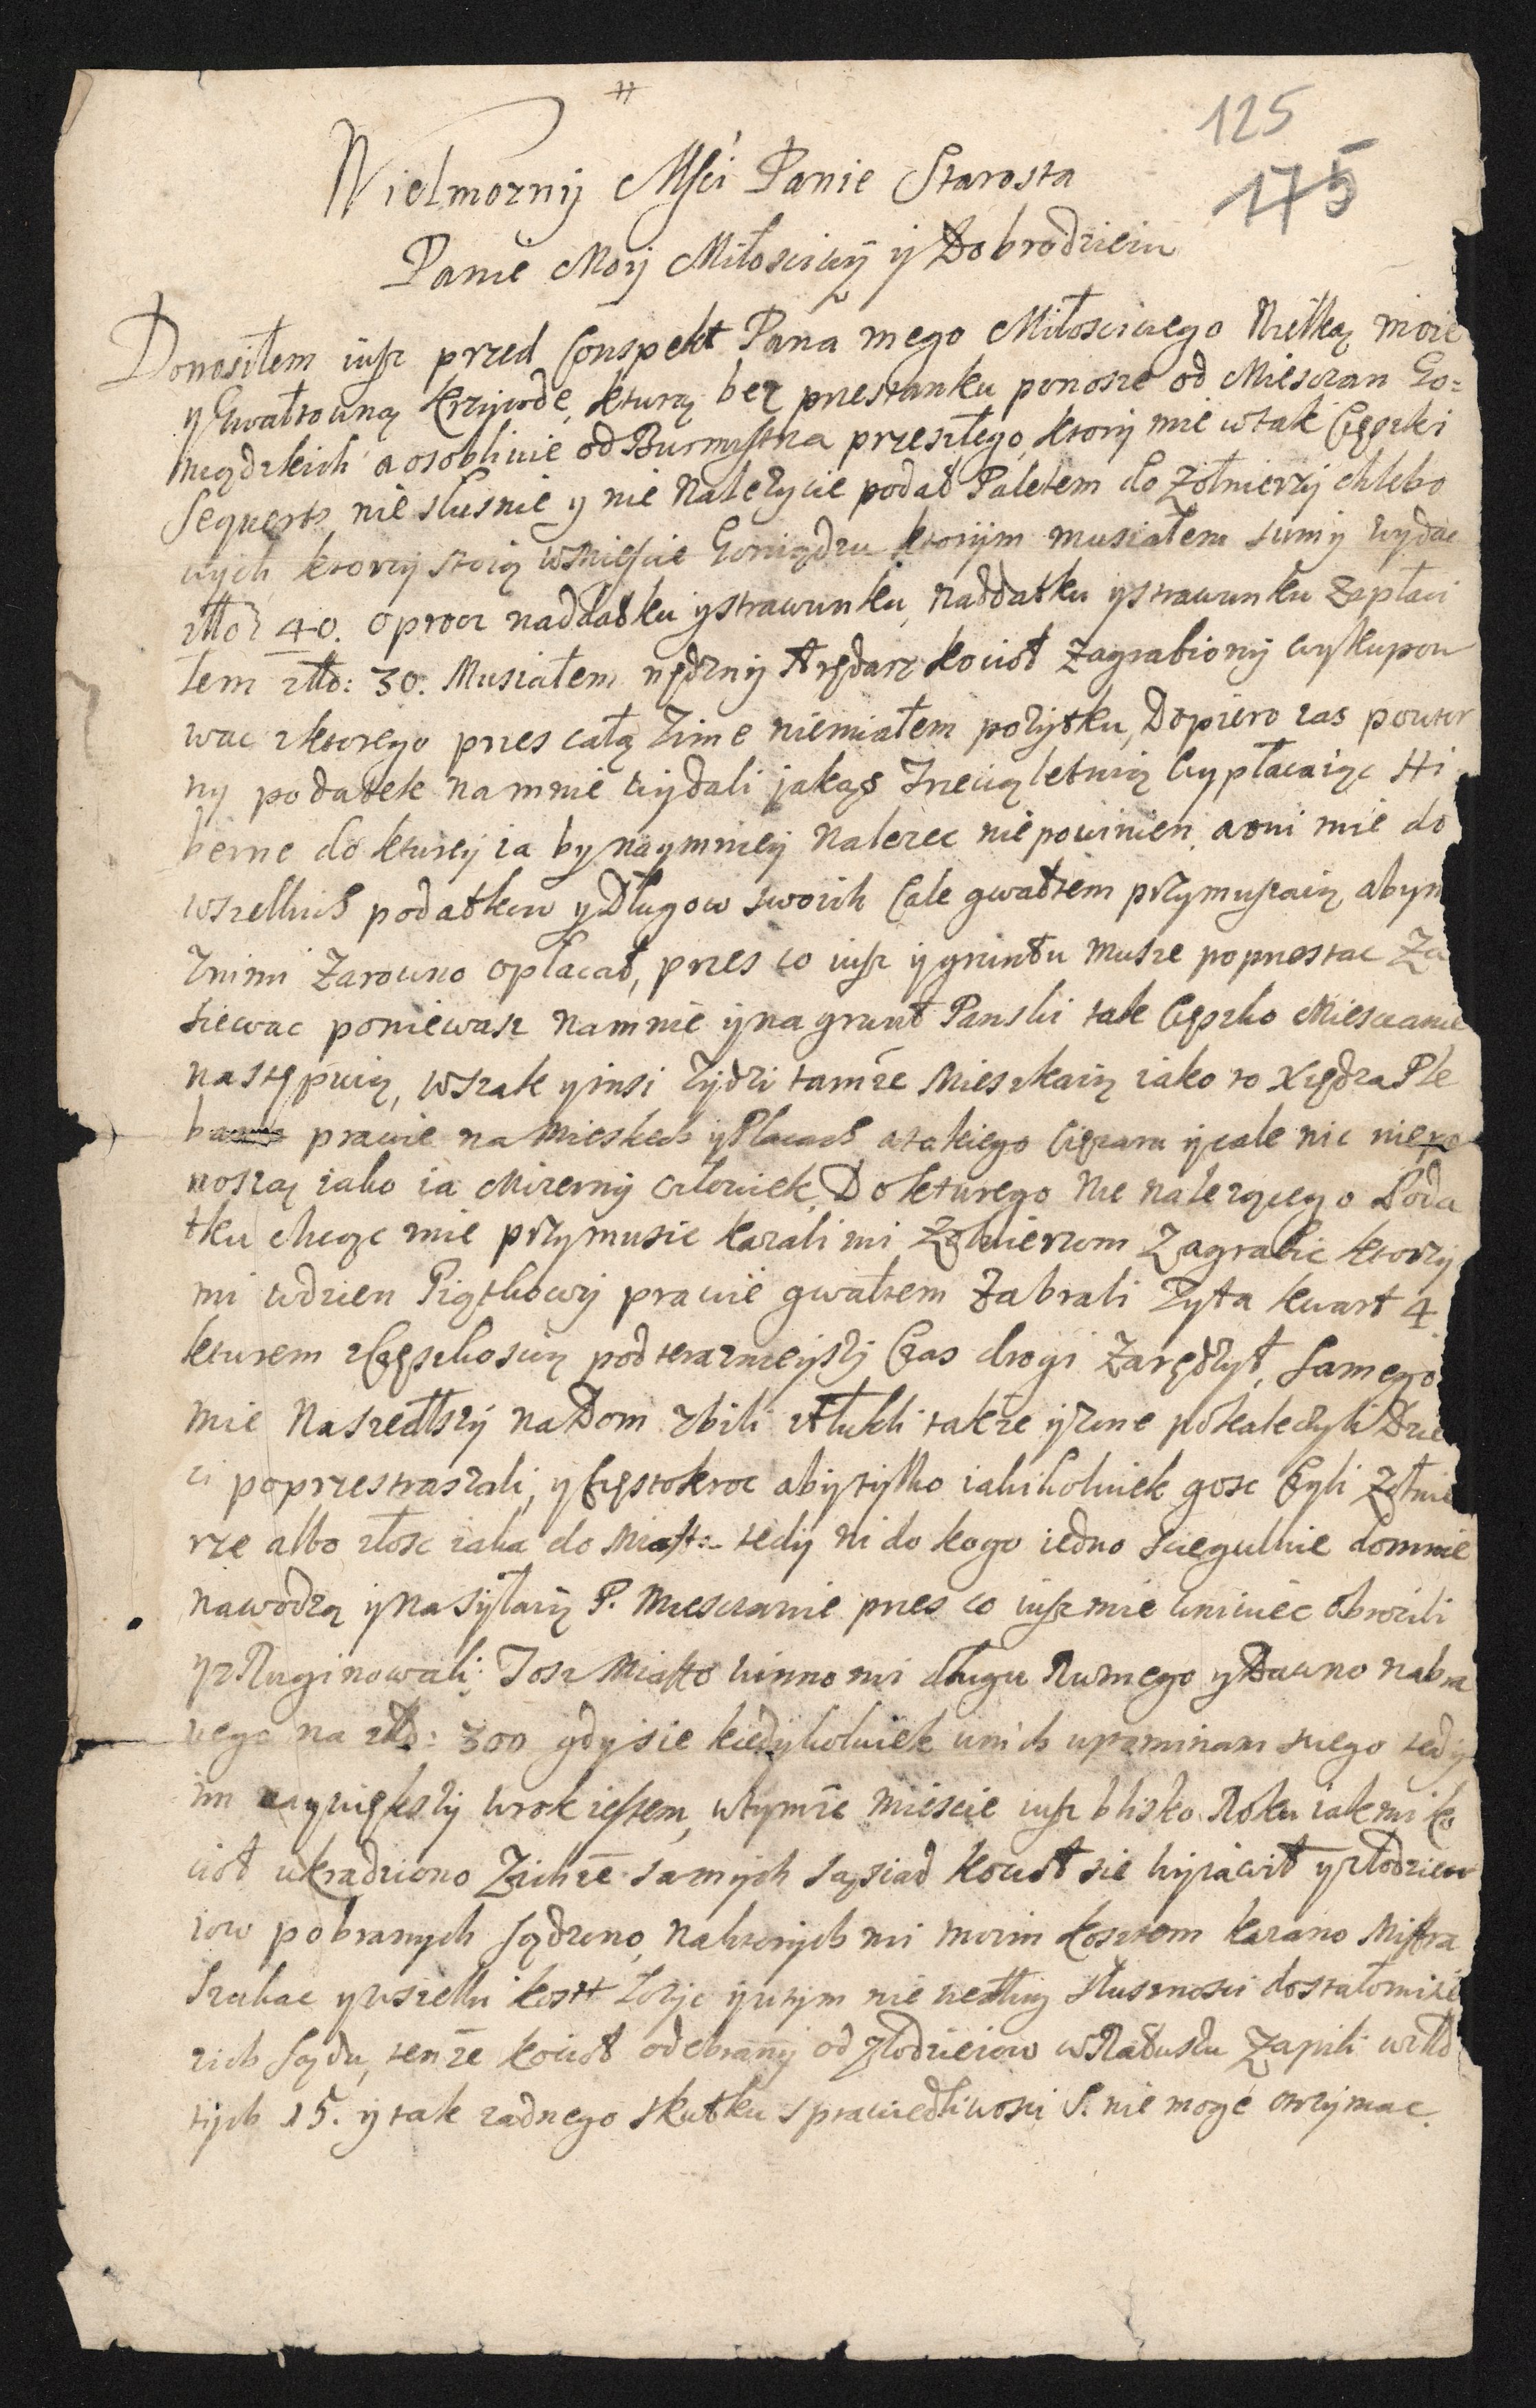 125
175
Wielmozny Mści Panie Starosta
Panie Moy Miłosciwÿ y Dobrodzieiu
Donosiłem iusz przed Conspekt Pana mego Miłosciwego Wielką moie
y Gwałtowną krzywdę, kturą bez przestanku ponosze od Miesczan Go=
niądzkich a osobliwie od Burmystrza przeszłego, ktory mie w tak Cięszki
Sequestr nie słusnie y nie nalezycie podał Paletem do Zołnierzy chlebo
wych ktorzy stoią w Miescie Goniądzu ktorym musiałem sumy wydac
złło 40. oprocz naddatku y strawunku, naddatku y strawunku zapłaci
łem złło: 30. Musiałem nędzny Arędarz kocioł zagrabiony wykupow
wac z ktorego przes całą Zime niemiałem pozytku, Dopiero zas powtor
ny podatek na mnie wydali jakąs Trzecią letnią wypłacaiąc Hi
berne do kturey ia by naymniey nalezec niepowinien, a oni mie do
wszelkich podatkow y Długow swoich Cale gwałtem przymuszaią abym
z nimi zarowno opłacał, przes co iusz y gruntu musze poprzestac Za
siewac poniewasz na mnie y na grunt Panski tak Cięszko Miesczanie
nastepuią, wszak y insi Zydzi tamze Mieszkaią iako to Xiędza Ple
bana prawie na Mieskich y Placach a takiego Ciężaru y cale nic niepo
noszą iako ia Mizerny człowiek, Do kturego nie nalezącego Poda
tku chcąc mie przymusic kazali mi Zołnierzom Zagrabic ktorzy
mi w dzien Piątkowy prawie gwałtem zabrali Zyta kwart 4
kturem z Cięszkoscią pod terazneiyszy Czas drogi Zarędzył, samego
mie naszedłszy na Dom zbili stłukli takze y zone pokaleczyli Dzie
ci poprzestraszali, y Cięstokroc aby tylko iakikolwiek gosc Czyli Zołnie
rze albo złosc iaka do Miasta tedy ni do kogo iedno sczegulnie do mnie
nawodzą y nasyłaią P. Miesczanie przes co iusz mie wniwec obrocili
y zRuginowali: Tosz Miasto winno mi długu Rumego y Dawno nabra
nego na złło: 300 gdy sie kiedykolwiek u nich upominam swego tedy
im naywiększy wrok iestem, w tymze miescie iusz blisko Roku iak mi ko
cioł ukradziono z ichze samych sąsiad kocioł sie wyiawił y złodzieio
iow pobranych sądzono, na ktorych mi moim kosztem kazano Mistrza
szukac y wszelki koszt łozyc y w tym nie według słusznosci dostało mi sie
z ich sądu, tenze kocioł odebrany od złodzieiow w Ratuszu zapili w złło
tych 15. y tak zadnego skutku sprawiedliwosci S. nie moge otrzymac.